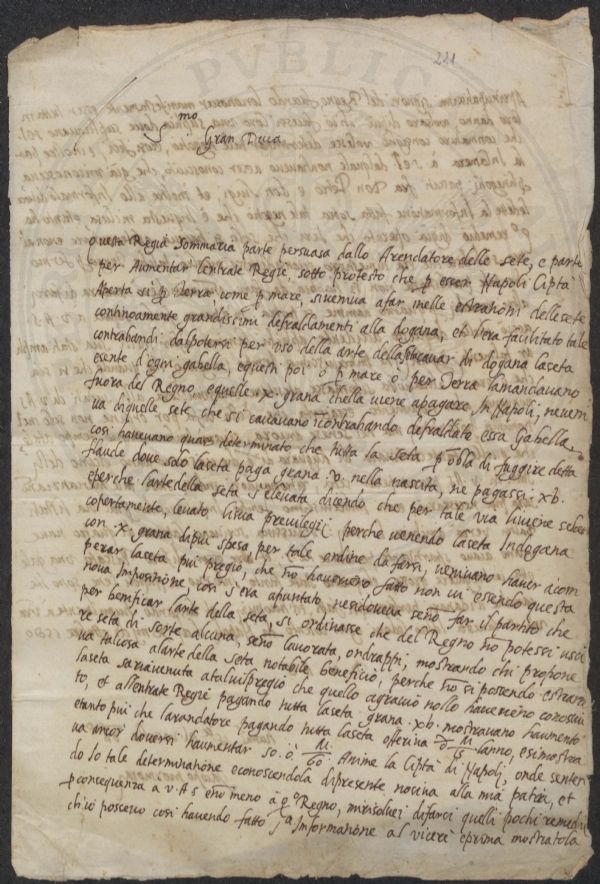 221
S.mo
Gran Duca
Questa Regia Sommaria parte persuasa dallo Arendatore delle sete, e parte
per Aumentar lentrate Regie, sotto protesto che p esser Napoli Ciptà
Aperta si p Terra come p mare, si veniva a far nelle estrationi delle sete
continoamente grandissimi defraldamenti alla dogana, et s'era facilitato tale
contrabandi dal potersi per uso della arte della seta cavar di dogana la seta
esente d'ogni gabella, e questi poi ò p mare ò per Terra la mandavano
fuora del Regno, e quelle .x. grana che la viene a pagare In Napoli, neven
va di quelle sete che si cavavano in contrabando defraldato essa Gabella,
così havevano quasi determinato che tutta la seta p obla di fuggire detta
flaude dove solo la seta paga grana .v. nella nascita, ne pagassi .xb.
e perche l'arte della seta s'elevata dicendo che per tale via li viene sebe
copertamente, levato li sua previlegij perche venendo la seta In dogana
con .x. grana di più spesa, per tale ordine da farsi, venivano haver a com
perar la seta più pregio, che nõ haveriено fatto non vi essendo questa
nova Impositione così s'era apuntato
per beneficar l'arte della seta, si ordinasse che del Regno nõ potessi usci
re seta di sorte alcuna, senõ lavorata, o in drappi, mostrando chi propone
va tal cosa a l'arte della seta notabile beneficio, perche nõ si potendo estrarre
la seta saria venuta a tal vil pregio che quello agravio nollo haveriено conosciu
to, et all'entrate Regie pagando tutta la seta grana .xb. mostravano haumento
e tanto più che l'arandatore pagando tutta la seta offeriva lanno, e si mostra
va ancor doversi haumentar 50. ò 60 Anime la Ciptà di Napoli, onde senten
do Io tale determinatione e conoscendola di presente nociva alla mia patria, et
p consequenza a v. A. S. e nõ meno à q.o Regno, mi risolvei di farci quelli pochi remedij
ch'io possevo così havendo fatto Informatione al vicerè e prima mostratola